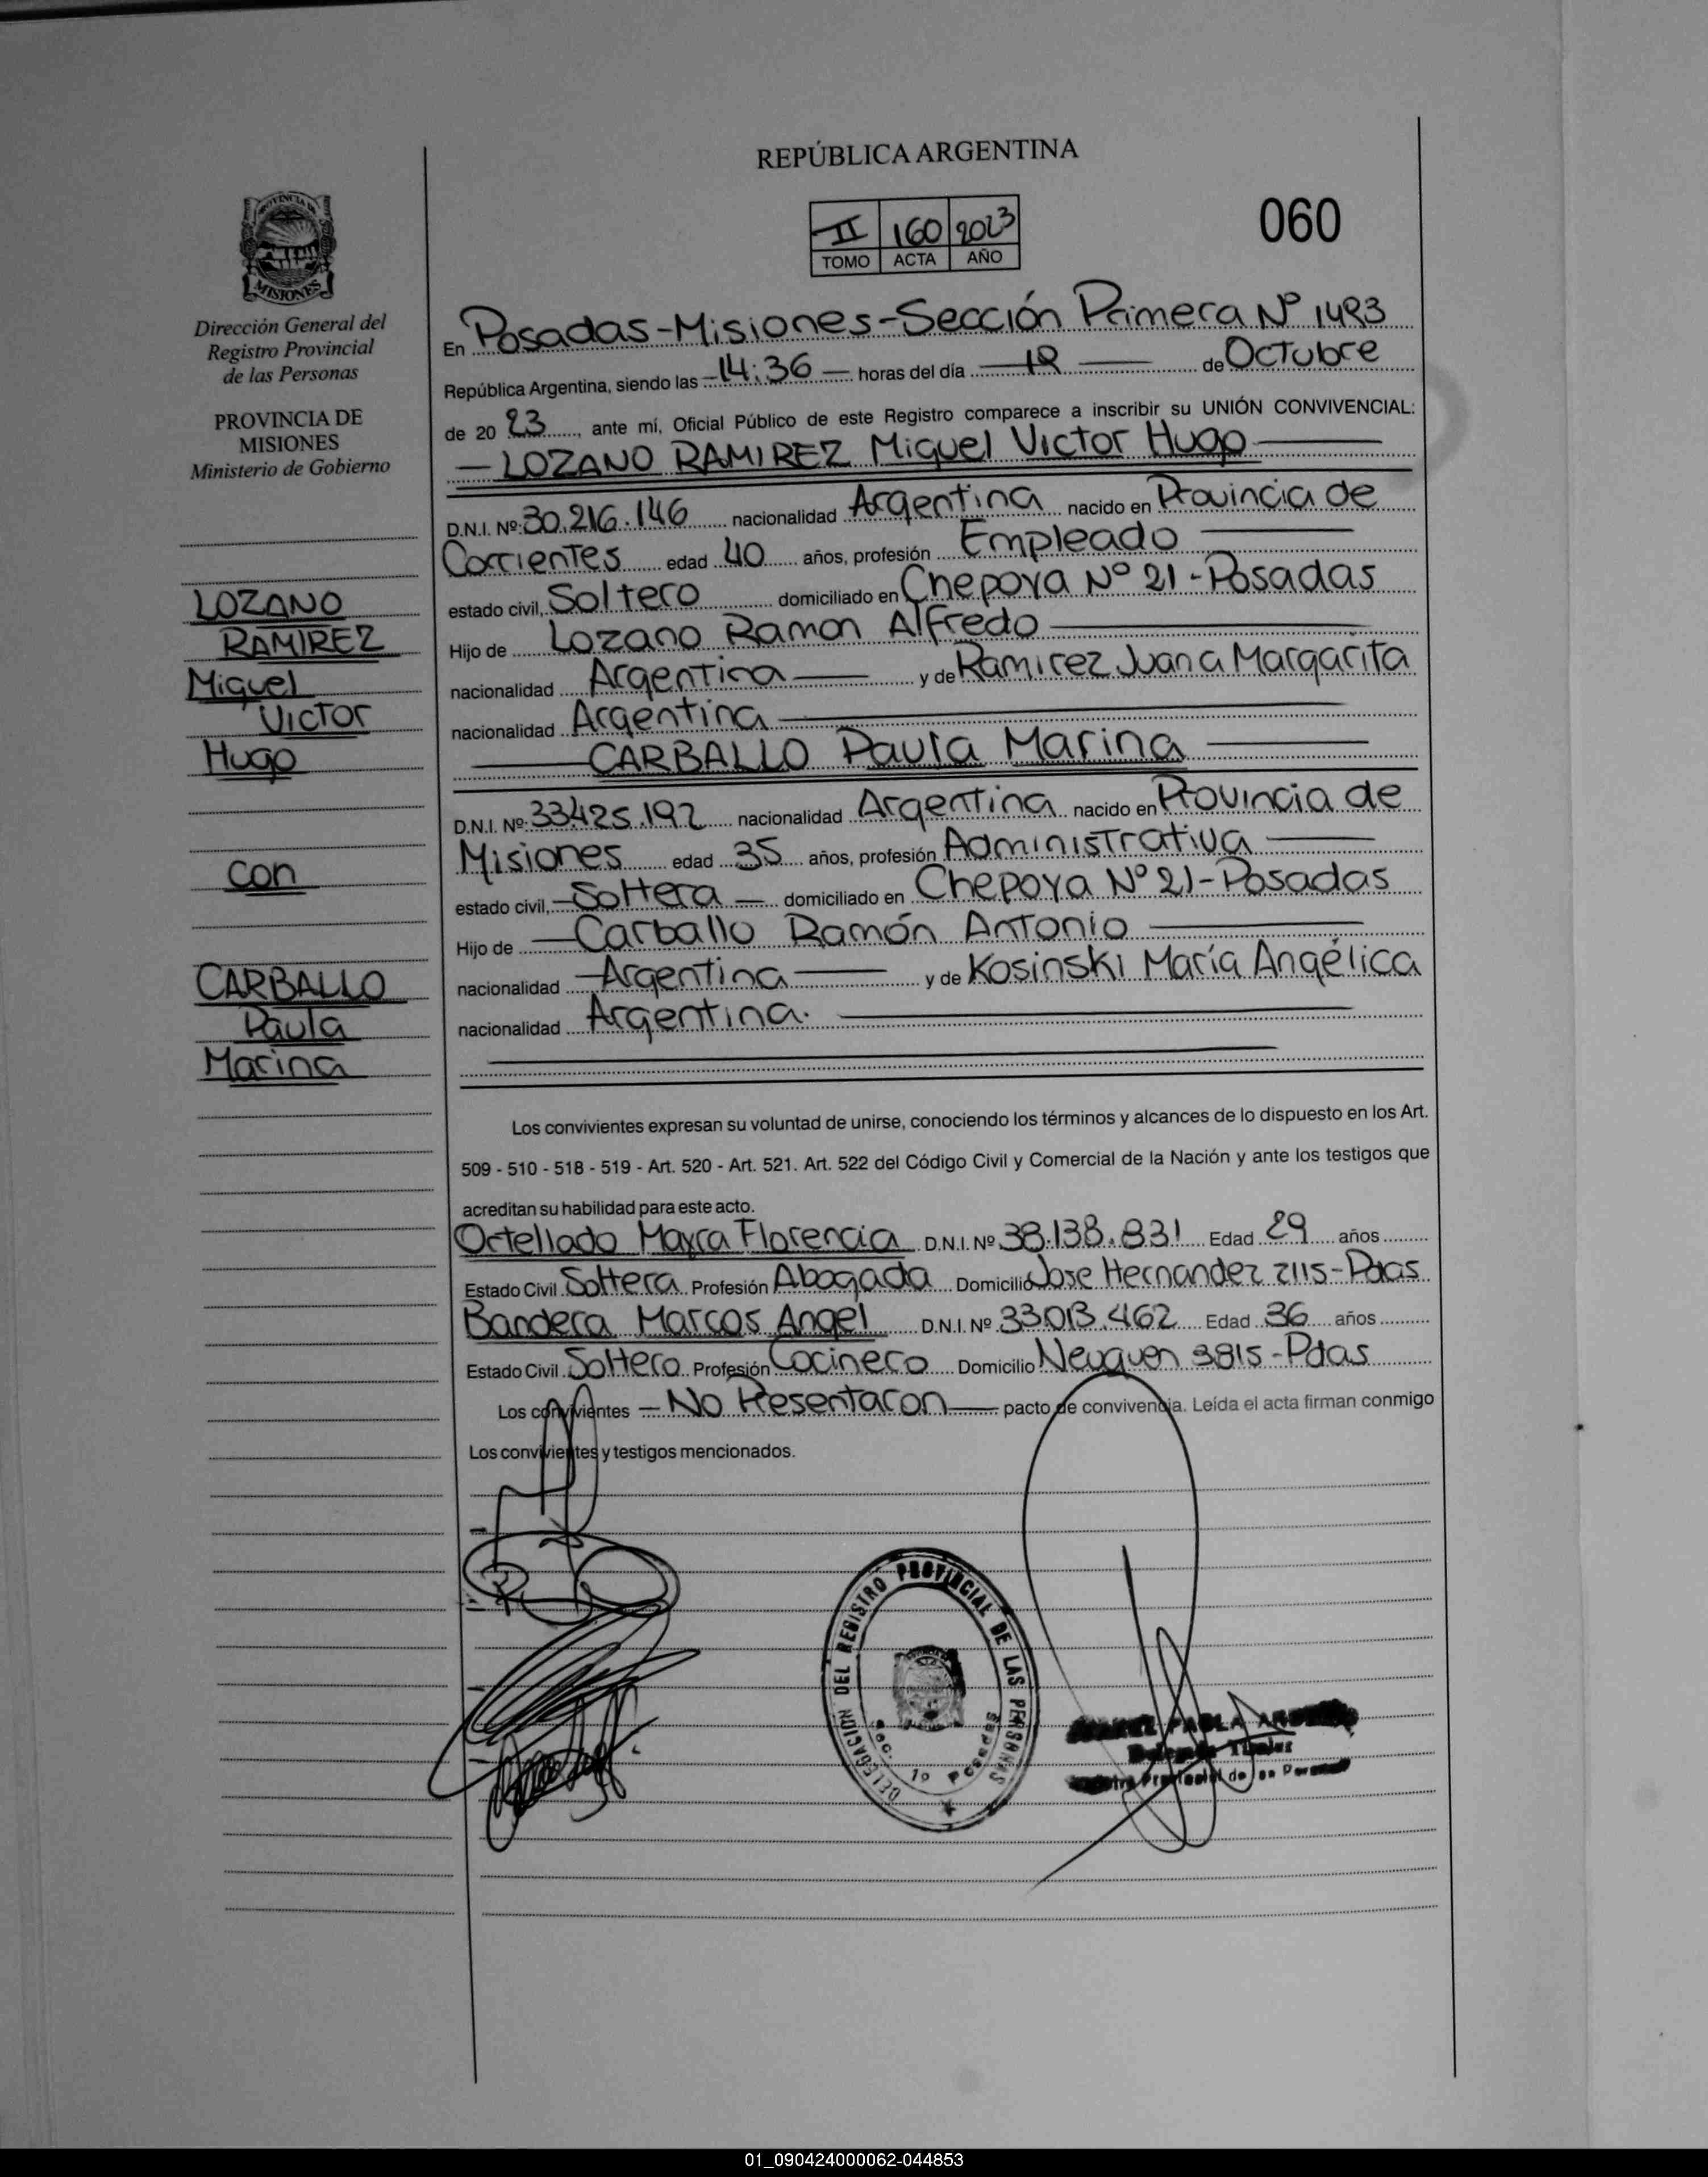 REPÚBLICA ARGENTINA
II 160 2023
TOMO ACTA AÑO
060
PROVINCIA DE
MISIONES
Dirección General del
Registro Provincial
de las Personas
PROVINCIA DE
MISIONES
Ministerio de Gobierno
LOZANO
RAMIREZ
Miguel
Victor
Hugo
con
CARBALLO
Paula
Marina
En Posadas-Misiones-Sección Primera Nº 1493
República Argentina, siendo las 14:36 horas del día de Octubre
de 20 23, ante mí, Oficial Público de este Registro comparece a inscribir su UNIÓN CONVIVENCIAL:
LOZANO RAMIREZ Miguel Victor Hugo
D.N.I. Nº: 30.216.146 nacionalidad Argentina nacido en Provincia de
Corrientes edad 40 años, profesión Empleado
estado civil, Soltero domiciliado en Chepoya Nº 21-Posadas
Hijo de Lozano Ramon Alfredo
nacionalidad Argentina y de Ramirez Juana Margarita
nacionalidad Argentina
CARBALLO Paula Marina
D.N.I. Nº: 33425.192 nacionalidad Argentina nacido en Provincia de
Misiones edad 35 años, profesión Administrativa
estado civil, Soltera domiciliado en Chepoya Nº 21-Posadas
Hijo de Carballo Ramón Antonio
nacionalidad Argentina y de Kosinski María Angélica
nacionalidad Argentina.
Los convivientes expresan su voluntad de unirse, conociendo los términos y alcances de lo dispuesto en los Art.
509 - 510 - 518 - 519 - Art. 520 - Art. 521. Art. 522 del Código Civil y Comercial de la Nación y ante los testigos que
acreditan su habilidad para este acto.
Ortellado Mayra Florencia D.N.I. Nº 38.138.831 Edad 29 años
Estado Civil Soltera Profesión Abogada Domicilio Jose Hernandez 2115-Pdas
Bandera Marcos Angel D.N.I. Nº 33.013.462 Edad 36 años
Estado Civil Soltero Profesión Cocinero Domicilio Neuquen 3815-Pdas
Los convivientes - No Presentaron pacto de convivencia. Leída el acta firman conmigo
Los convivientes y testigos mencionados.
DELEGACION DEL REGISTRO PROVINCIAL DE LAS PERSONAS
Sec. 1º Posadas
PAOLA
Delegada Titular
Registro Provincial de las Personas
01_090424000062-044853